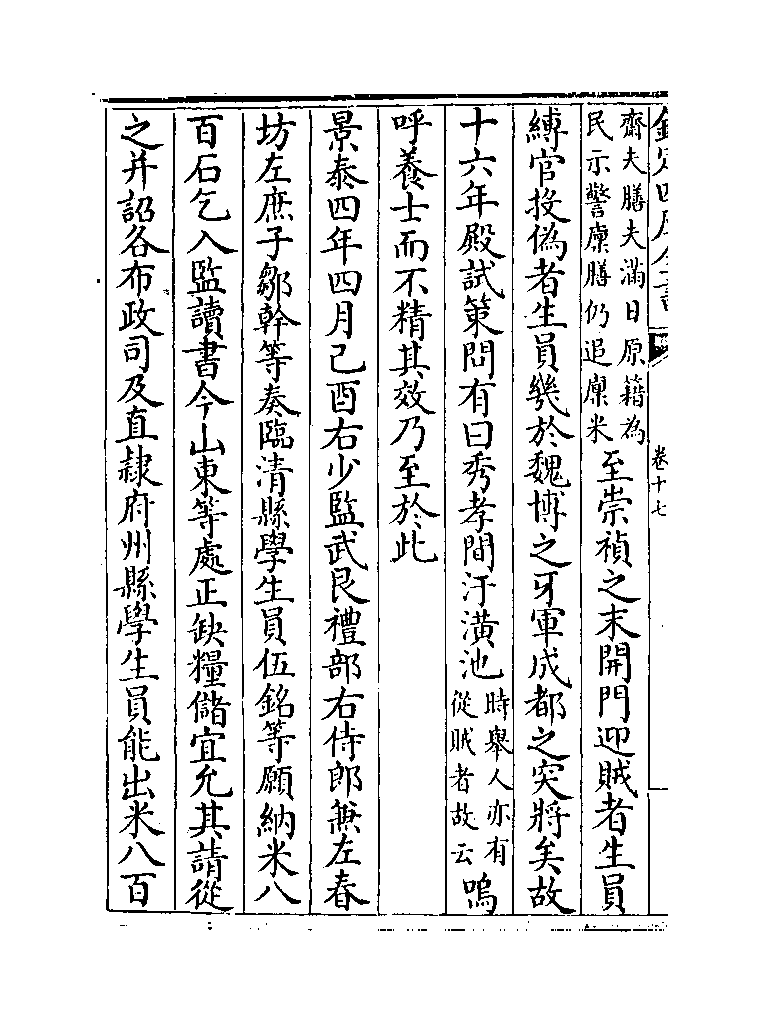 欽定四庫全書 卷十七
齋夫膳夫滿日原籍為
民示警廩膳仍追廩米
至崇禎之末開門迎賊者生員
縛官投偽者生員幾於魏博之牙軍成都之突將矣故
十六年殿試策問有曰秀孝間汙潢池
時舉人亦有
從賊者故云
嗚
呼養士而不精其效乃至於此
景泰四年四月己酉右少監武艮禮部右侍郎兼左春
坊左庶子鄒幹等奏臨清縣學生員伍銘等願納米八
百石乞入監讀書今山東等處正缺糧儲宜允其請從
之并詔各布政司及直隸府州縣學生員能出米八百